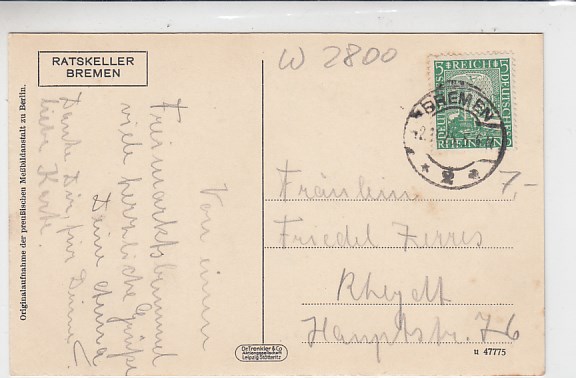 RATSKELLER
BREMEN
W 2800
5 REICH 5
DEUTSCHES
DEUTSCHES
RHEINLAND
BREMEN
* 2 a
Originalaufnahme der preußischen Meßbildanstalt zu Berlin.
Von einem
Freimarktsbummel
viele herzliche Grüße
Deine Anna
Danke Dir für Deine
liebe Karte.
Fräulein
7,-
Friedel Zerres
Rheydt
Hauptstr. 76
Dr. Trenkler & Co
Aktiengesellschaft
Leipzig-Stötteritz
u 47775